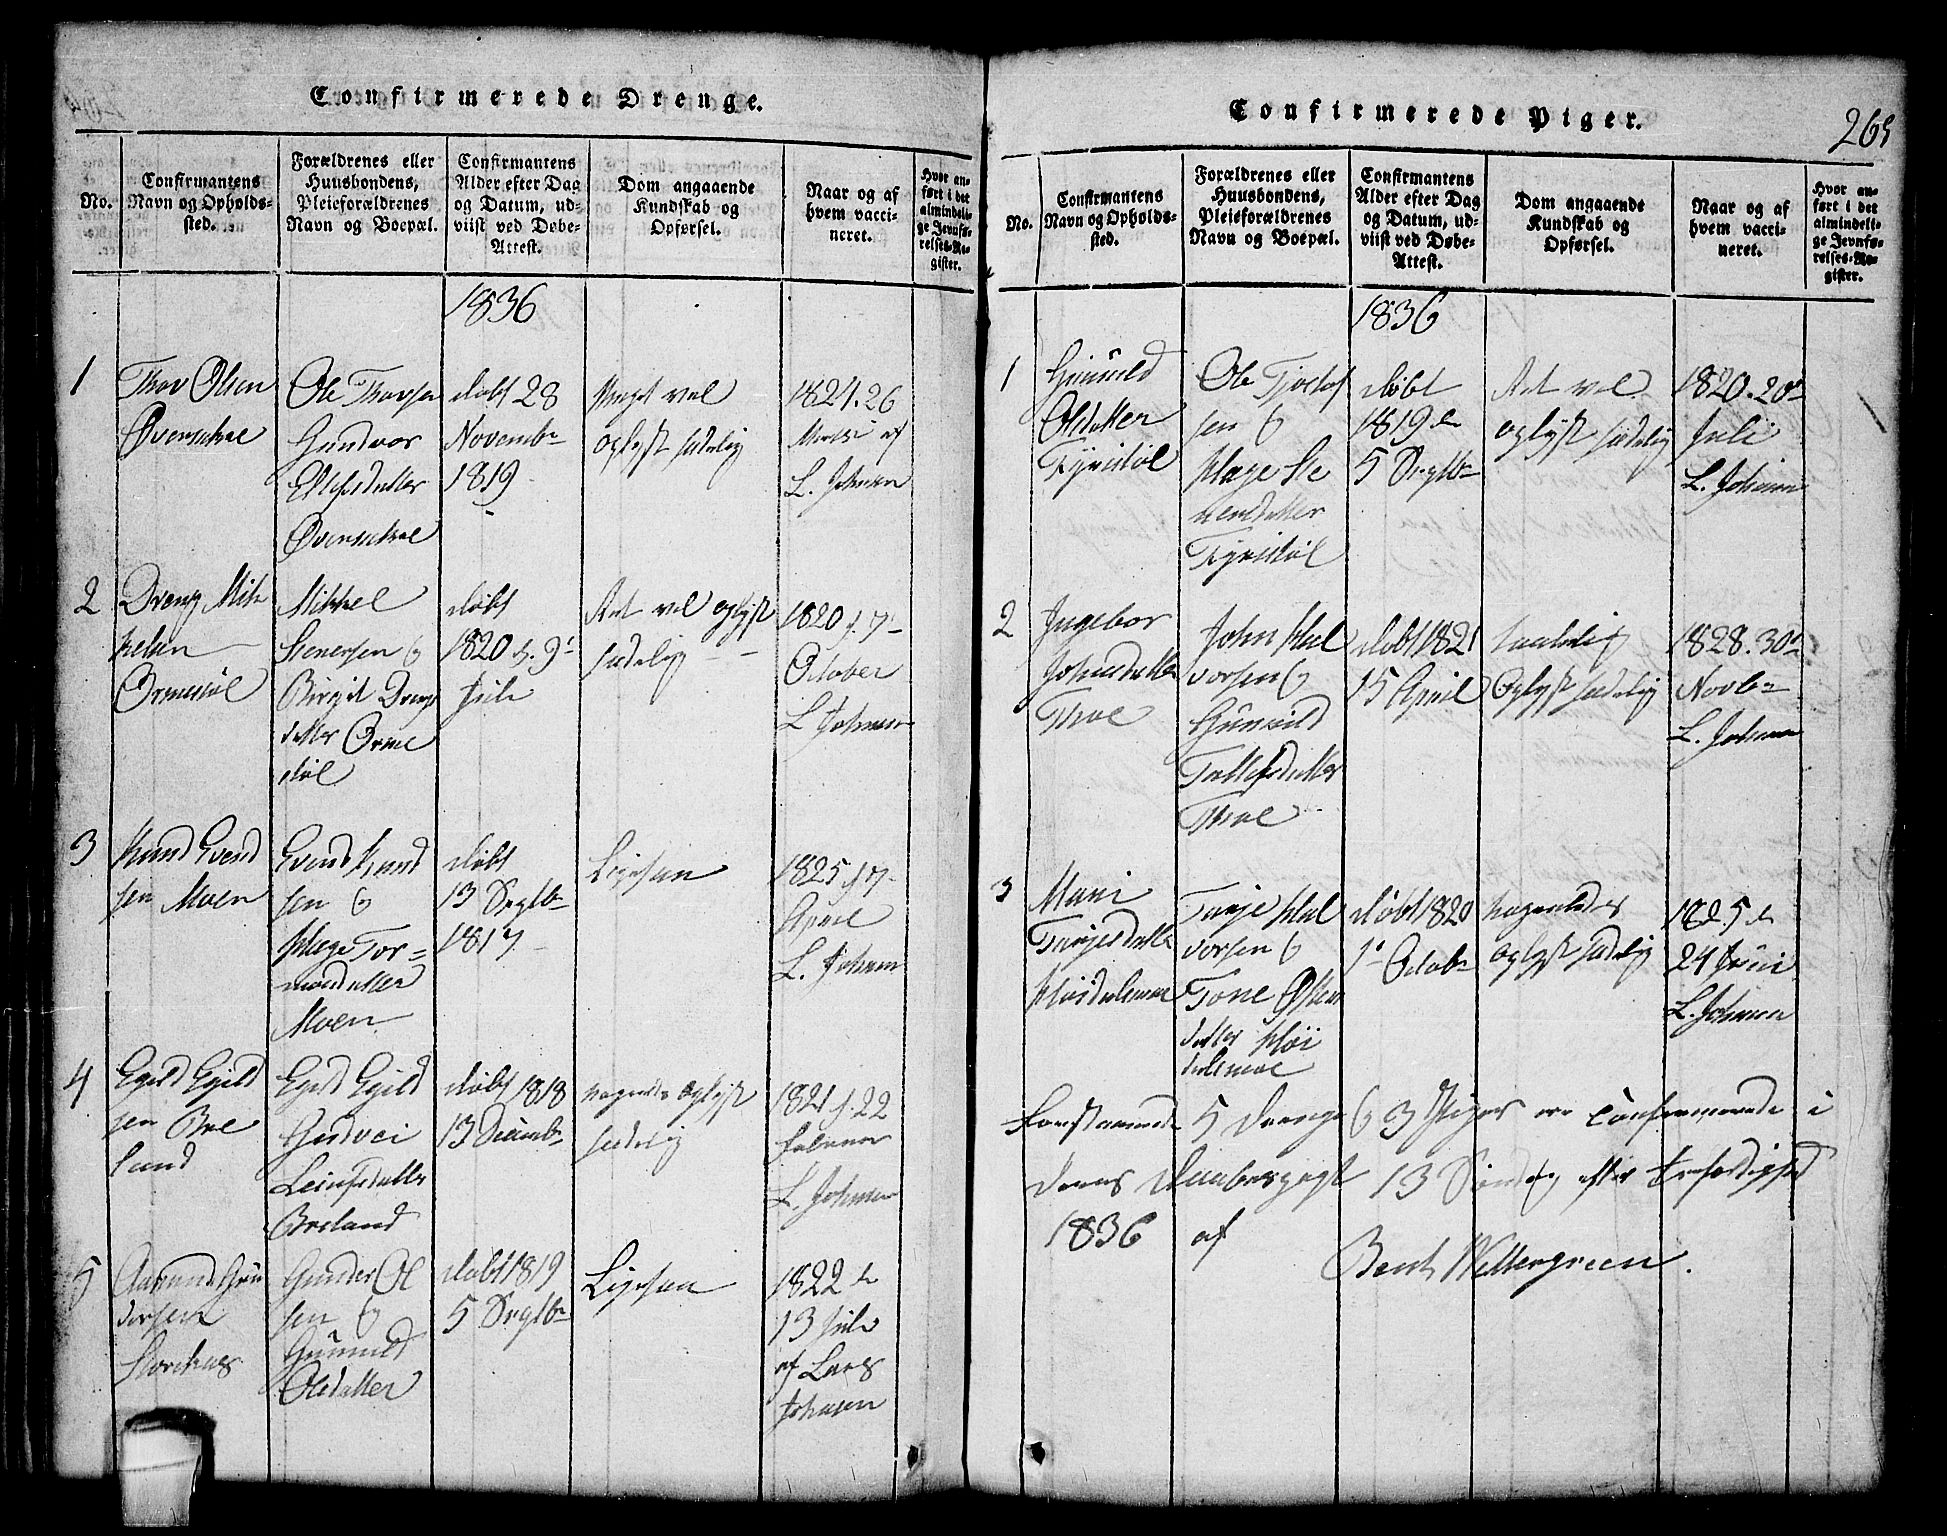 Confirmerede Drenge.
No.
Confirmantens Navn og Opholds-sted.
Forældrenes eller Huusbondens, Pleieforældrenes Navn og Boepæl.
Confirmantens Alder efter Dag og Datum, ud-viist ved Døbe-Attest.
Dom angaaende Kundskab og Opførsel.
Naar og af hvem vacci-neret.
Hvor an-ført i det almindeli-ge Jevnfø-relses-Re-gister.
1836
1
Thov Olsen
Ole Thovsen
Gundvor
døbt 28
Novembr
1819
Meget vel
oplyst sædelig
1824. 26
af
L. Johnsen
2
Dreng Mik
kelsen
Ormestøl
Mikkel
Stenersen &
Birgit Drengs
datter Orme
støl
døbt
1820 d. 9
Juli
Ret vel oplyst
sædelig
1820 d. 7
October
L Johnsen
3
Knud Evend
sen Moen
Evend Knud
sen &
Hæge Tor=
Moen
døbt
13 Septbr
1817
Ligesaa
1825 d 7
April
L. Johnsen
4
Egild Egild
sen Bre
land
Egild Egild
Leivsdatter
Breland
døbt 1818
13 Decemb
oplyst
sædelig
1821 d. 22
Februar
L. Johnsen
5
Aamund Gun
dersen
Gunder Ol
sen &
Gunild
Olsdatter
døbt 1819
5 Septbr
Ligesaa
1822 d
13 Juli
af Lars
Johnsen
Confirmerede Piger.
265
No.
Confirmantens Navn og Opholds-sted.
Forældrenes eller Huusbondens, Pleieforældrenes Navn og Boepæl.
Confirmantens Alder efter Dag og Datum, ud-viist ved Døbe-Attest.
Dom angaaende Kundskab og Opførsel.
Naar og af hvem vacci-neret.
Hvor an-ført i det almindeli-ge Jevnfø-relses-Re-gister.
1836
1
Gunild
Olsdatter
Tyristøl
Ole Tjostof
sen &
Hæge Ste
nersdatter
Tyristøl
døbt
1819 d
5 Septbr
Ret vel
oplyst sædelig
1820. 20
Juli
L. Johnsen
2
Ingebor
Johnsdatter
Thoe
John Hal
vorsen &
Gunild
Thoe
døbt 1821
15 April
maadelig
oplyst sædelig
1828. 30
Novbr
L. Johnsen
3
Mari
Tarjesdatter
Tarje Hal
vorsen &
Tone
datter
døbt 1820
1 Octobr
nogenledes
oplyst sædelig
1825 d
24 Juni
L. Johnsen
5 Drenge & 3 Piger ere confirmerede i
13 Søndag efter Trefoldighed
1836 af
Bent Wettergreen.